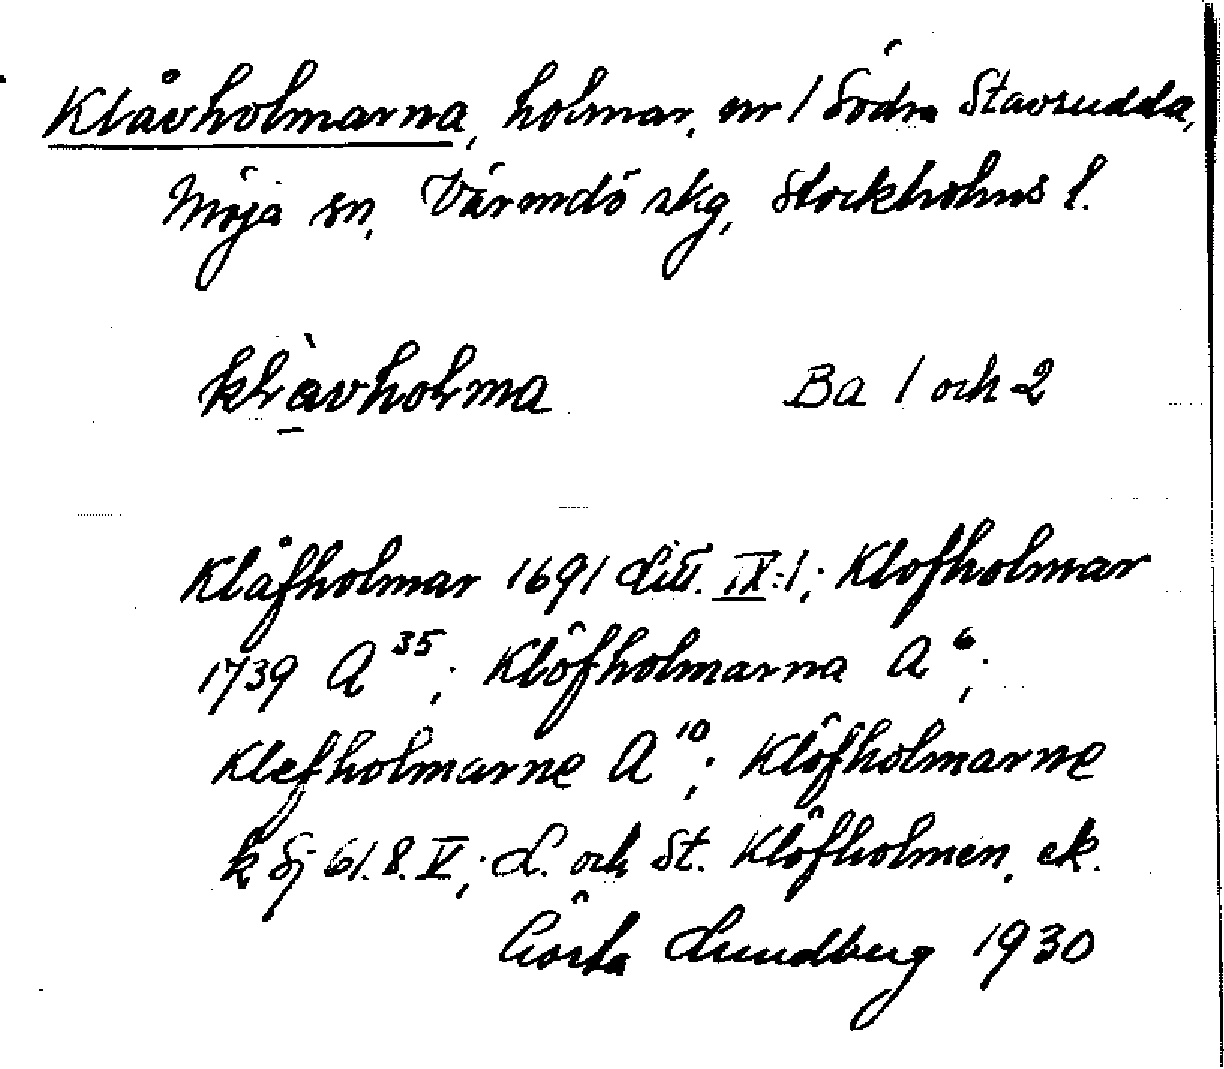 Klåvholmarna, holmar, nr 1 Södra Stavsudda,
Möja sn, Värmdö skg, Stockholms l.
klàvholma Ba 1 och 2
Klåfholmar 1691 Litt. IX:1; Klofholmar
1739 A35; Klöfholmarna A6;
Klefholmarne A10; Klöfholmarne
k Sj 61.8.V; L. och St. Klöfholmen, ek.
Gösta Lundberg 1930